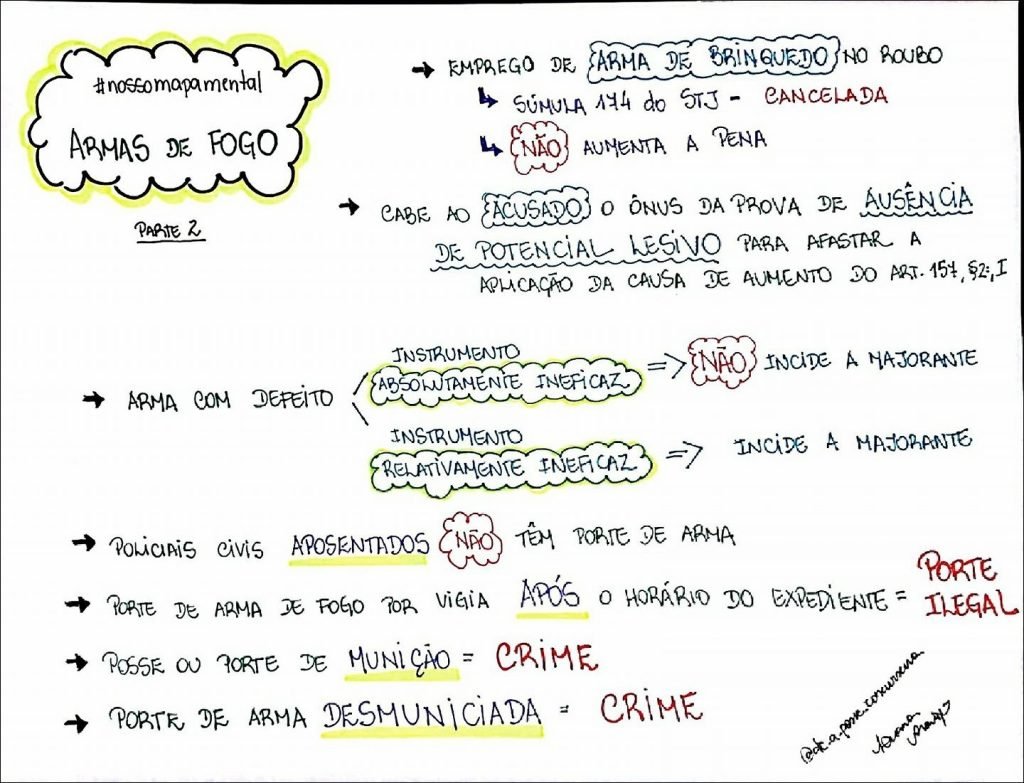 #nossomapamental
ARMAS DE FOGO
PARTE 2
→ EMPREGO DE ARMA DE BRINQUEDO NO ROUBO
↳ SÚMULA 174 do STJ - CANCELADA
↳ NÃO AUMENTA A PENA
→ CABE AO ACUSADO O ÔNUS DA PROVA DE AUSÊNCIA
DE POTENCIAL LESIVO PARA AFASTAR A
APLICAÇÃO DA CAUSA DE AUMENTO DO ART. 157, §2º, I
→ ARMA COM DEFEITO
INSTRUMENTO
ABSOLUTAMENTE INEFICAZ => NÃO INCIDE A MAJORANTE
INSTRUMENTO
RELATIVAMENTE INEFICAZ => INCIDE A MAJORANTE
→ POLICIAIS CIVIS APOSENTADOS NÃO TÊM PORTE DE ARMA
→ PORTE DE ARMA DE FOGO POR VIGIA APÓS O HORÁRIO DO EXPEDIENTE = PORTE ILEGAL
→ POSSE OU PORTE DE MUNIÇÃO = CRIME
→ PORTE DE ARMA DESMUNICIADA = CRIME